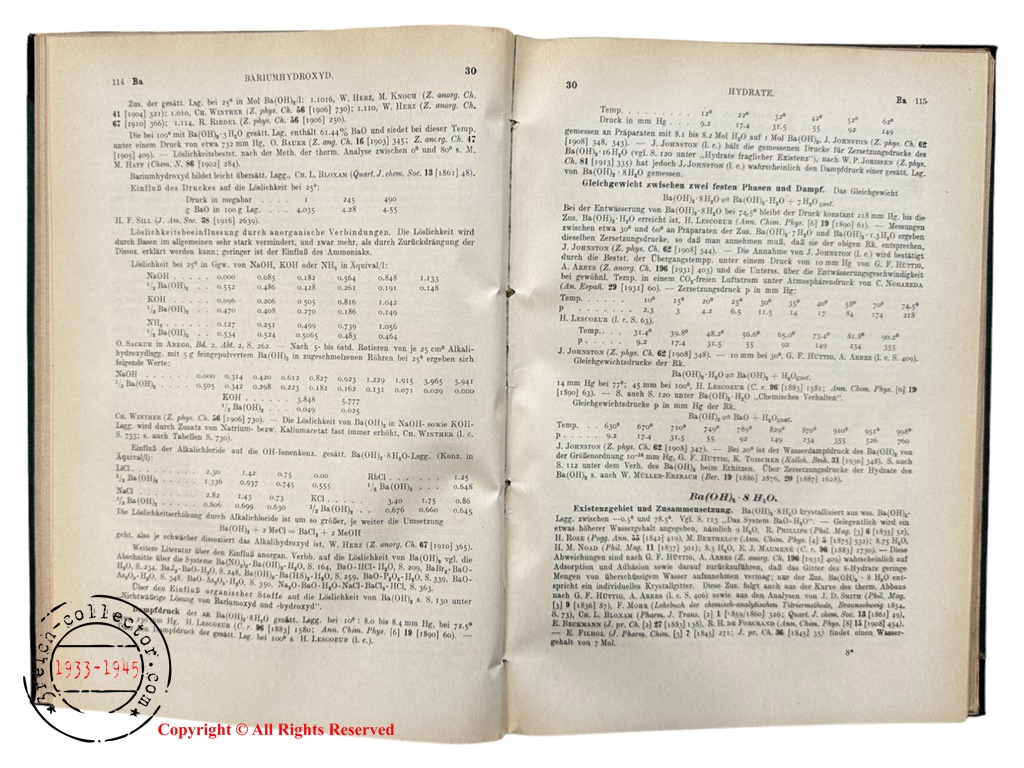 114 Ba
BARIUMHYDROXYD.
30
Zus. der gesätt. Lsg. bei 25° in Mol Ba(OH)₂/l: 1.1016, W. HERZ, M. KNOCH (Z. anorg. Ch.
41 [1904] 321); 1.010, CH. WINTHER (Z. phys. Ch. 56 [1906] 730); 1.110, W. HERZ (Z. anorg. Ch.
67 [1910] 366); 1.114, R. RIEDEL (Z. phys. Ch. 56 [1906] 250).
Die bei 109° mit Ba(OH)₂·3H₂O gesätt. Lsg. enthält 61.44% BaO und siedet bei dieser Temp.
unter einem Druck von etwa 732 mm Hg, O. BAUER (Z. ang. Ch. 16 [1903] 345; Z. anorg. Ch. 47
[1905] 409). — Löslichkeitsbest. nach der Meth. der therm. Analyse zwischen 0° und 80° s. M.
M. HAFF (Chem. N. 86 [1902] 284).
Bariumhydroxyd bildet leicht übersätt. Lsgg., CH. L. BLOXAM (Quart. J. chem. Soc. 13 [1861] 48).
Einfluß des Druckes auf die Löslichkeit bei 25°:
Druck in megabar . . . . 1 245 490
g BaO in 100 g Lsg. . . . . 4.035 4.28 4.55
H. F. SILL (J. Am. Soc. 38 [1916] 2639).
Löslichkeitsbeeinflussung durch anorganische Verbindungen. Die Löslichkeit wird
durch Basen im allgemeinen sehr stark vermindert, und zwar mehr, als durch Zurückdrängung der
Dissoz. erklärt werden kann; geringer ist der Einfluß des Ammoniaks.
Löslichkeit bei 25° in Ggw. von NaOH, KOH oder NH₃ in Äquival/l:
NaOH . . . . . 0.000 0.085 0.182 0.564 0.848 1.133
¹/₂ Ba(OH)₂ . . . 0.552 0.486 0.428 0.261 0.191 0.148
KOH . . . . . . 0.096 0.206 0.505 0.816 1.042
¹/₂ Ba(OH)₂ . . . 0.470 0.408 0.270 0.186 0.149
NH₃ . . . . . . 0.127 0.251 0.499 0.739 1.056
¹/₂ Ba(OH)₂ . . . 0.534 0.524 0.5065 0.483 0.464
O. SACKUR in ABEGG, Bd. 2, Abt. 2, S. 262. — Nach 5- bis 6std. Rotieren von je 25 cm³ Alkali-
hydroxydlsgg. mit 5 g feingepulvertem Ba(OH)₂ in zugeschmolzenen Röhren bei 25° ergeben sich
folgende Werte:
NaOH . . . . . . 0.000 0.314 0.420 0.612 0.827 0.923 1.229 1.915 3.965 5.941
¹/₂ Ba(OH)₂ . . . . 0.505 0.342 0.298 0.223 0.182 0.162 0.131 0.071 0.029 0.000
KOH . . . . . . 3.848 5.777
¹/₂ Ba(OH)₂ . . . 0.049 0.025
CH. WINTHER (Z. phys. Ch. 56 [1906] 730). — Die Löslichkeit von Ba(OH)₂ in NaOH- sowie KOH-
Lsgg. wird durch Zusatz von Natrium- bezw. Kaliumacetat fast immer erhöht, CH. WINTHER (l. c.
S. 733; s. auch Tabellen S. 730).
Einfluß der Alkalichloride auf die OH-Ionenkonz. gesätt. Ba(OH)₂·8H₂O-Lsgg. (Konz. in
Äquival/l):
LiCl . . . . . . . . 2.30 1.42 0.75 0.00 RbCl . . . . . . . . 1.25
¹/₂ Ba(OH)₂ . . . . . 1.336 0.937 0.745 0.555 ¹/₂ Ba(OH)₂ . . . . . 0.648
NaCl . . . . . . . . 2.82 1.43 0.73 KCl . . . . . . 3.40 1.75 0.86
¹/₂ Ba(OH)₂ . . . . 0.806 0.699 0.630 ¹/₂ Ba(OH)₂ . . 0.676 0.660 0.645
Die Löslichkeitserhöhung durch Alkalichloride ist um so größer, je weiter die Umsetzung
Ba(OH)₂ + 2 MeCl = BaCl₂ + 2 MeOH
geht, also je schwächer dissoziiert das Alkalihydroxyd ist, W. HERZ (Z. anorg. Ch. 67 [1910] 365).
Weitere Literatur über den Einfluß anorgan. Verbb. auf die Löslichkeit von Ba(OH)₂ vgl. die
Abschnitte über die Systeme Ba(NO₃)₂-Ba(OH)₂-H₂O, S. 164, BaO-HCl-H₂O, S. 209, BaBr₂-BaO-
H₂O, S. 234, BaJ₂-BaO-H₂O, S. 248, Ba(OH)₂-Ba(HS)₂-H₂O, S. 259, BaO-P₂O₅-H₂O, S. 339, BaO-
As₂O₃-H₂O, S. 348, BaO-As₂O₅-H₂O, S. 350, Na₂O-BaO-H₂O-NaCl-BaCl₂-HCl, S. 363.
Über den Einfluß organischer Stoffe auf die Löslichkeit von Ba(OH)₂ s. S. 130 unter
„Nichtwäßrige Lösung von Bariumoxyd und -hydroxyd“.
Dampfdruck der an Ba(OH)₂·8H₂O gesätt. Lsgg. bei 10°: 8.0 bis 8.4 mm Hg, bei 72.5°
230 mm Hg, H. LESCOEUR (C. r. 96 [1883] 1580; Ann. Chim. Phys. [6] 19 [1890] 60). —
den Dampfdruck der gesätt. Lsg. bei 100° s. H. LESCOEUR (l. c.).
30
HYDRATE.
Ba 115
Temp. . . . . . . . 12° 22° 32° 42° 52° 62°
Druck in mm Hg . . . . 9.2 17.4 31.5 55 92 149
gemessen an Präparaten mit 8.1 bis 8.2 Mol H₂O auf 1 Mol Ba(OH)₂, J. JOHNSTON (Z. phys. Ch. 62
[1908] 348, 343). — J. JOHNSTON (l. c.) hält die gemessenen Drucke für Zersetzungsdrucke des
Ba(OH)₂·16H₂O (vgl. S. 120 unter „Hydrate fraglicher Existenz“), nach W. P. JORISSEN (Z. phys.
Ch. 81 [1913] 335) hat jedoch J. JOHNSTON (l. c.) wahrscheinlich den Dampfdruck einer gesätt. Lsg.
von Ba(OH)₂·8H₂O gemessen.
Gleichgewicht zwischen zwei festen Phasen und Dampf. Das Gleichgewicht
Ba(OH)₂·8H₂O ⇌ Ba(OH)₂·H₂O + 7 H₂O gasf.
Bei der Entwässerung von Ba(OH)₂·8H₂O bei 74.5° bleibt der Druck konstant 218 mm Hg, bis die
Zus. Ba(OH)₂·H₂O erreicht ist, H. LESCOEUR (Ann. Chim. Phys. [6] 19 [1890] 61). — Messungen
zwischen etwa 30° und 60° an Präparaten der Zus. Ba(OH)₂·7H₂O und Ba(OH)₂·1.3H₂O ergeben
dieselben Zersetzungsdrucke, so daß man annehmen muß, daß sie der obigen Rk. entsprechen,
J. JOHNSTON (Z. phys. Ch. 62 [1908] 344). — Die Annahme von J. JOHNSTON (l. c.) wird bestätigt
durch die Best. der Übergangstempp. unter einem Druck von 10 mm Hg von G. F. HÜTTIG,
A. ARBES (Z. anorg. Ch. 196 [1931] 403) und die Unterss. über die Entwässerungsgeschwindigkeit
bei gewöhnl. Temp. in einem CO₂-freien Luftstrom unter Atmosphärendruck von C. NOGAREDA
(An. Españ. 29 [1931] 60). — Zersetzungsdruck p in mm Hg:
Temp. . . . . . . 10° 15° 20° 25° 30° 35° 40° 58° 70° 74.5°
p . . . . . . . . 2.3 3 4.2 6.5 11.5 14 17 84 174 218
H. LESCOEUR (l. c. S. 63).
Temp. . . 31.4° 39.8° 48.2° 56.6° 65.0° 73.4° 81.8° 90.2°
p . . . . 9.2 17.4 31.5 55 92 149 234 355
J. JOHNSTON (Z. phys. Ch. 62 [1908] 348). — 10 mm bei 30°, G. F. HÜTTIG, A. ARBES (l. c. S. 409).
Gleichgewichtsdrucke der Rk.
Ba(OH)₂·H₂O ⇌ Ba(OH)₂ + H₂O gasf.
14 mm Hg bei 77°; 45 mm bei 100°, H. LESCOEUR (C. r. 96 [1883] 1581; Ann. Chim. Phys. [6] 19
[1890] 63). — S. auch S. 120 unter Ba(OH)₂·H₂O „Chemisches Verhalten“.
Gleichgewichtsdrucke p in mm Hg der Rk.
Ba(OH)₂ ⇌ BaO + H₂O gasf.
Temp. . . 630° 670° 710° 749° 789° 829° 870° 910° 951° 998°
p . . . . 9.2 17.4 31.5 55 92 149 234 355 526 760
J. JOHNSTON (Z. phys. Ch. 62 [1908] 347). — Bei 20° ist der Wasserdampfdruck des Ba(OH)₂ von
der Größenordnung 10⁻¹⁶ mm Hg, G. F. HÜTTIG, K. TOISCHER (Kolloh. Beih. 31 [1930] 348). S. auch
S. 112 unter dem Verh. des Ba(OH)₂ beim Erhitzen. Über Zersetzungsdrucke der Hydrate des
Ba(OH)₂ s. auch W. MÜLLER-ERZBACH (Ber. 19 [1886] 2876, 20 [1887] 1628).
Ba(OH)₂ · 8 H₂O.
Existenzgebiet und Zusammensetzung. Ba(OH)₂·8H₂O krystallisiert aus wss. Ba(OH)₂-
Lsgg. zwischen —0.5° und 78.5°. Vgl. S. 113 „Das System BaO-H₂O“. — Gelegentlich wird ein
etwas höherer Wassergehalt angegeben, nämlich 9 H₂O, R. PHILLIPS (Phil. Mag. [3] 6 [1835] 52),
H. ROSE (Pogg. Ann. 55 [1842] 419), M. BERTHELOT (Ann. Chim. Phys. [4] 5 [1875] 332); 8.75 H₂O,
H. M. NOAD (Phil. Mag. 11 [1837] 301); 8.5 H₂O, E. J. MAUMENÉ (C. r. 96 [1883] 1730). — Diese
Abweichungen sind nach G. F. HÜTTIG, A. ARBES (Z. anorg. Ch. 196 [1931] 409) wahrscheinlich der
Adsorption und Adhäsion sowie darauf zurückzuführen, daß das Gitter des 8-Hydrats geringe
Mengen von überschüssigem Wasser aufzunehmen vermag; nur der Zus. Ba(OH)₂ · 8 H₂O ent-
spricht ein individuelles Krystallgitter. Diese Zus. folgt auch aus der Kurve des therm. Abbaus
nach G. F. HÜTTIG, A. ARBES (l. c. S. 406) sowie aus den Analysen von J. D. SMITH (Phil. Mag.
[3] 9 [1836] 87), F. MOHR (Lehrbuch der chemisch-analytischen Titriermethode, Braunschweig 1854,
S. 73), CH. L. BLOXAM (Pharm. J. Trans. [2] 1 [1859/1860] 326; Quart. J. chem. Soc. 13 [1861] 49),
E. BECKMANN (J. pr. Ch. [2] 27 [1883] 138), R. H. DE FORCRAND (Ann. Chim. Phys. [8] 15 [1908] 454).
— E. FILHOL (J. Pharm. Chim. [3] 7 [1845] 271; J. pr. Ch. 36 [1845] 35) findet einen Wasser-
gehalt von 7 Mol.
8*
3reich-collector.com
1933-1945
Copyright © All Rights Reserved